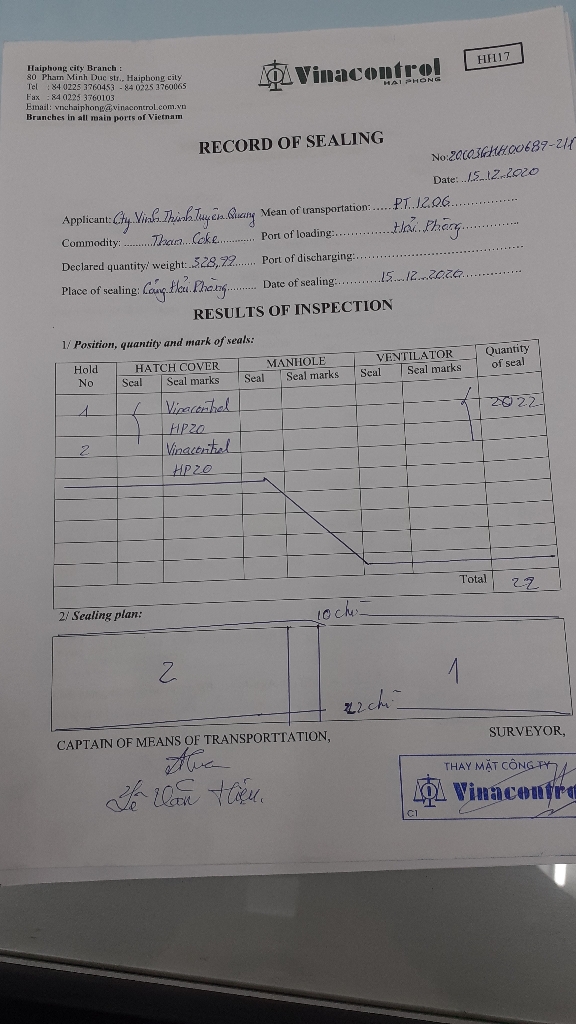 Haiphong city Branch :
80 Pham Minh Duc str., Haiphong city
Tel : 84 0225 3760453 - 84 0225 3760065
Fax : 84 0225 3760103
Email: vnchaiphong@vinacontrol.com.vn
Branches in all main ports of Vietnam
Vinacontrol
HAI PHONG
HH17
RECORD OF SEALING
No:
Date: 15.12.2020
Applicant: Cty Vinh Thịnh Tuyên Quang Mean of transportation: PT.1206
Commodity: Than Coke Port of loading: Hải Phòng
Declared quantity/ weight: 328,99 Port of discharging:
Place of sealing: Cảng Hải Phòng Date of sealing: 15.12.2020
RESULTS OF INSPECTION
1/ Position, quantity and mark of seals:
Hold No HATCH COVER MANHOLE VENTILATOR Quantity of seal
Seal Seal marks Seal Seal marks Seal Seal marks
1 Vinacontrol
HP20
2 Vinacontrol
HP20
Total 22
2/ Sealing plan:
10 chì
2 1
22 chì
CAPTAIN OF MEANS OF TRANSPORTTATION, SURVEYOR,
THAY MẶT CÔNG TY
Vinacontro
C1